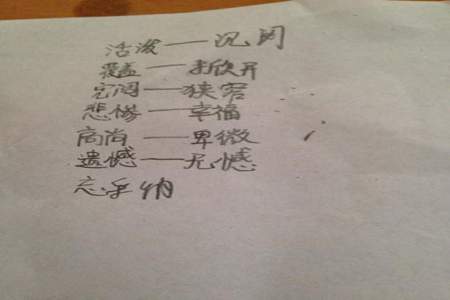 活泼——沉闷
覆盖——掀开
宽阔——狭窄
悲惨——幸福
高尚——卑微
遗憾——无憾